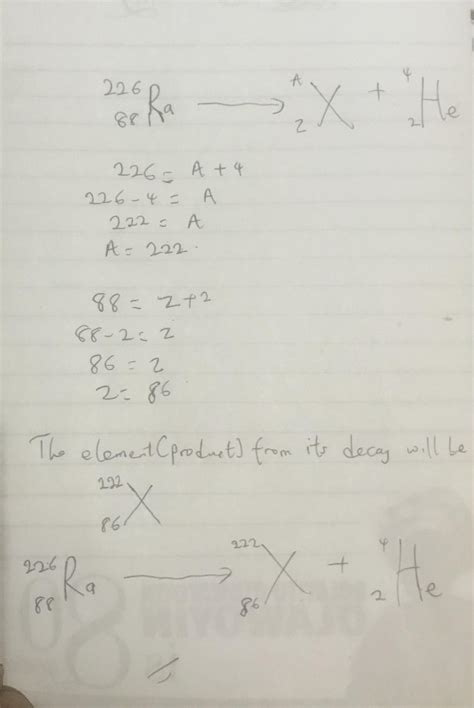 ²²⁶₈₈Ra → ᴬ_ZX + ⁴₂He
226 = A + 4
226 - 4 = A
222 = A
A = 222.
88 = Z + 2
88 - 2 = Z
86 = Z
Z = 86
The element (product) from its decay will be
²²²₈₆X
²²⁶₈₈Ra → ²²²₈₆X + ⁴₂He
80
OLAWOYIN